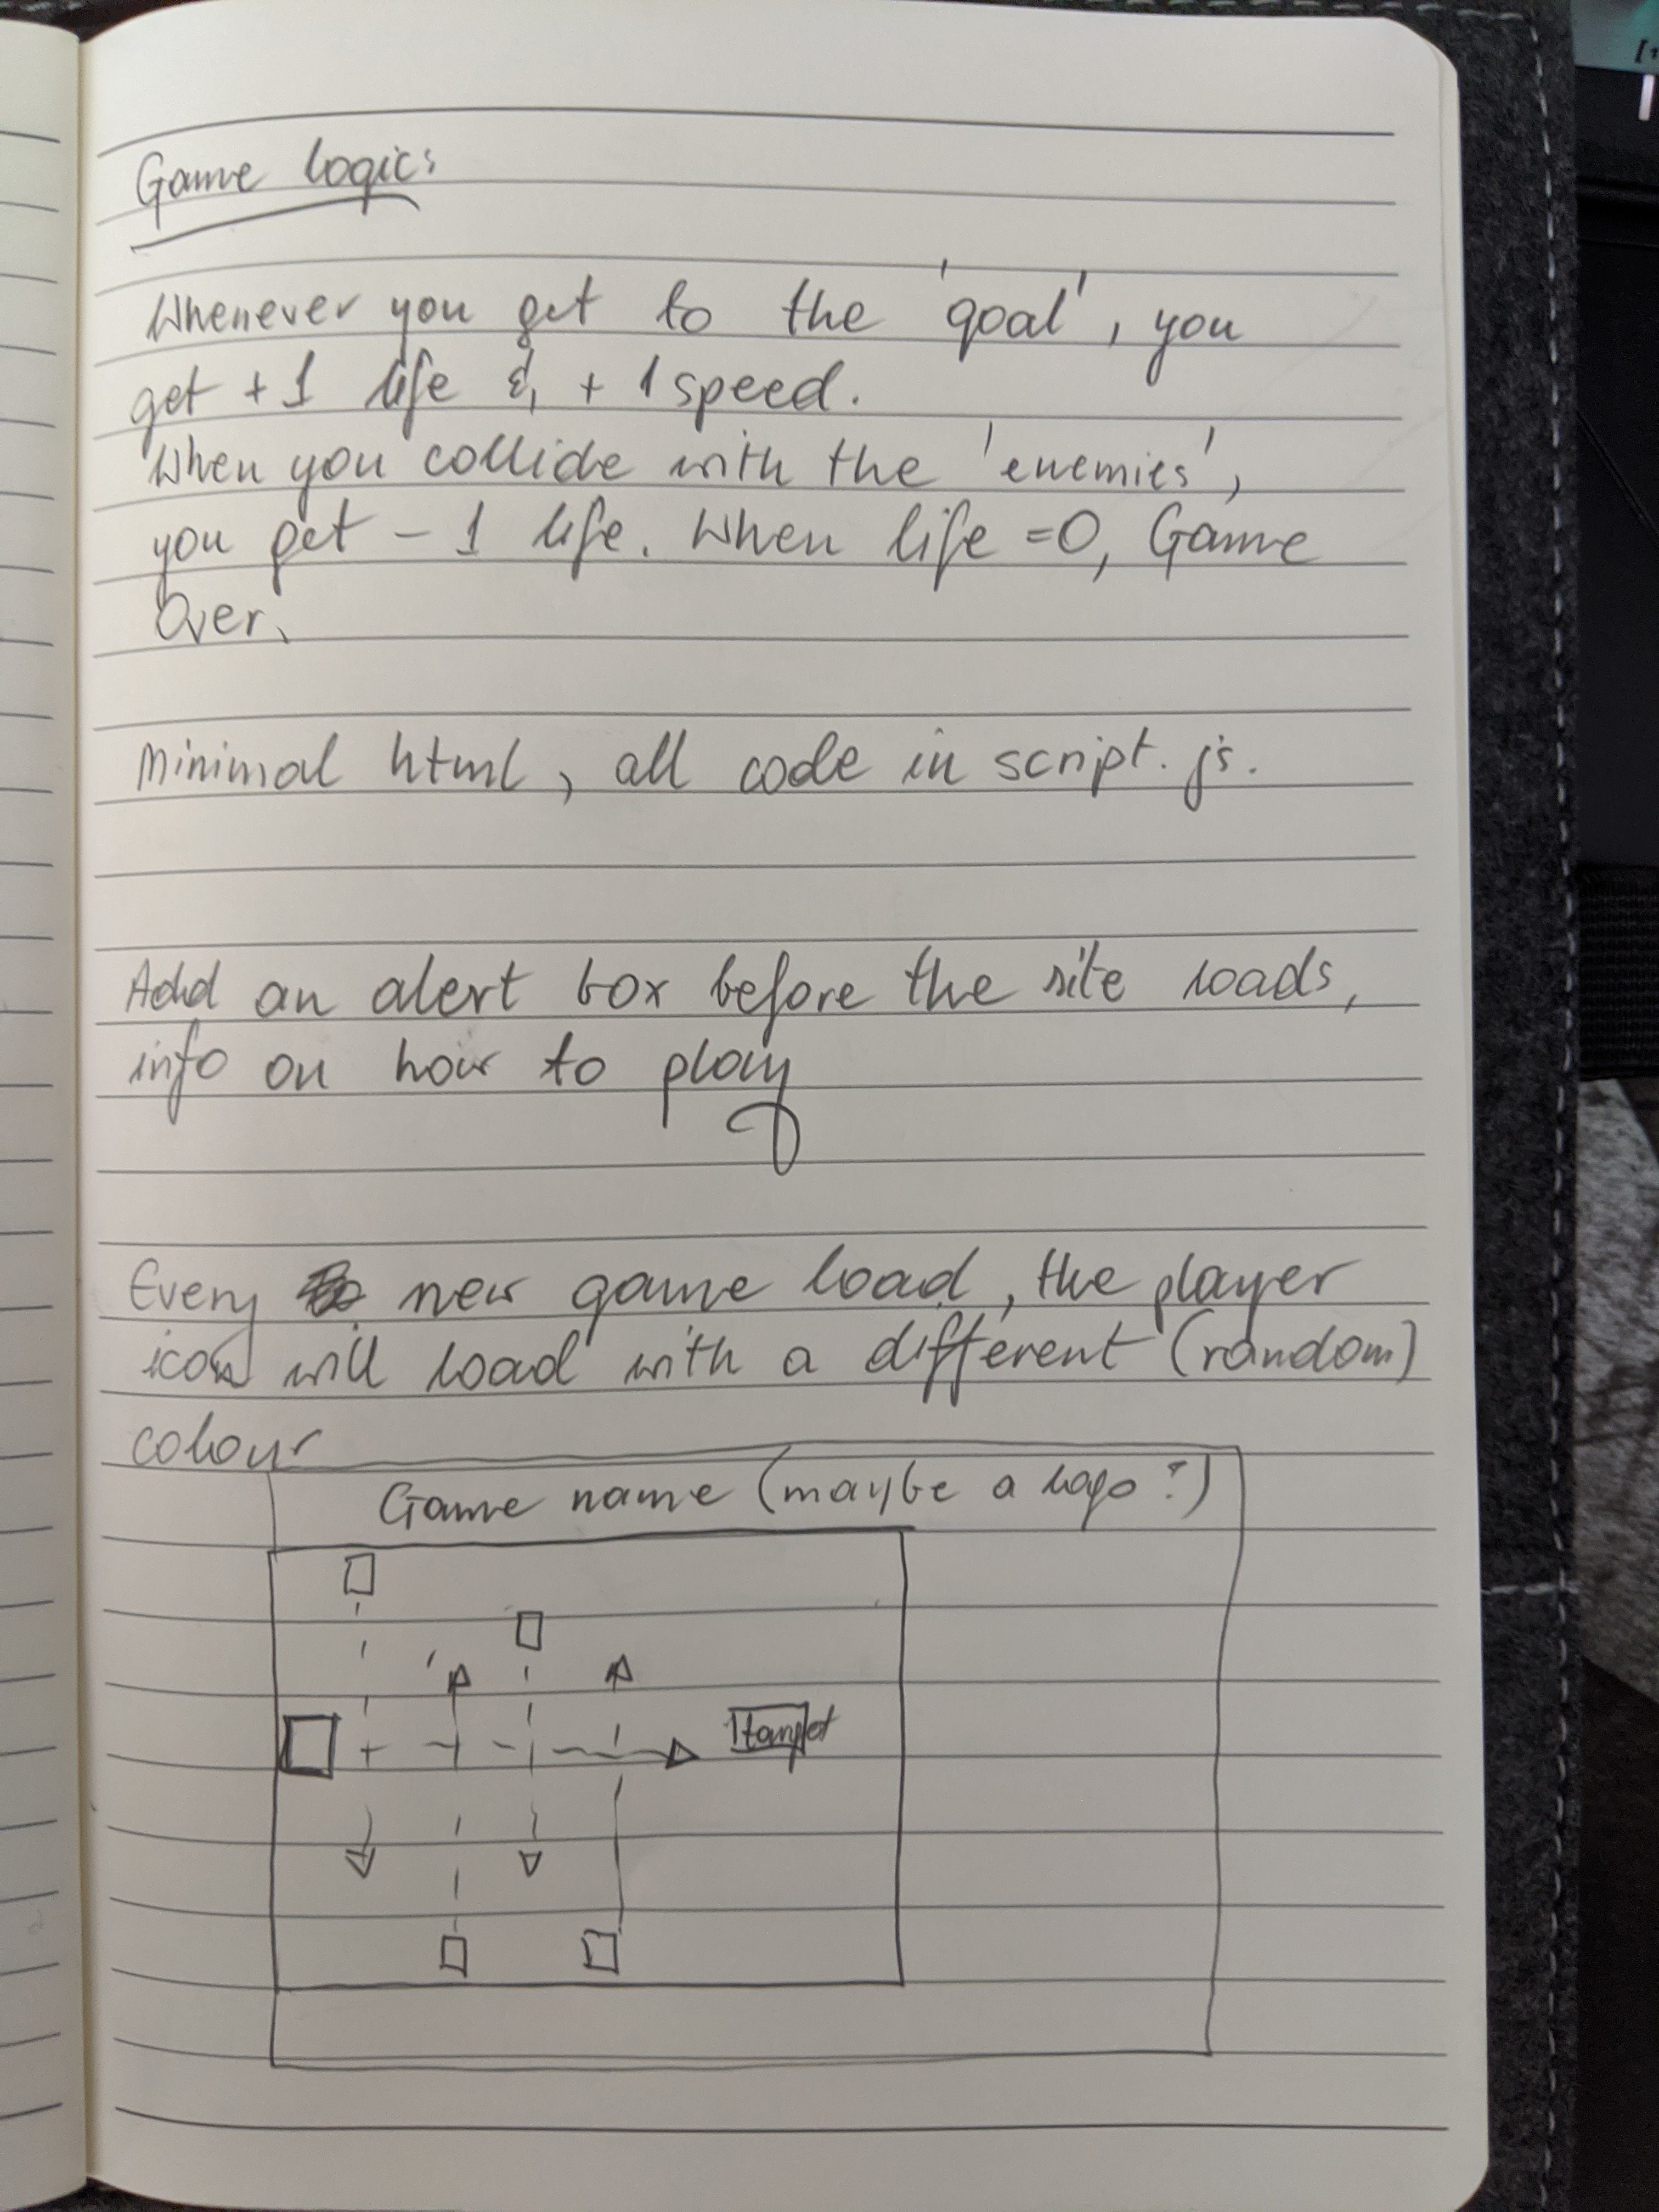 Game logic:
Whenever you get to the 'goal', you
get +1 life & +1 speed.
When you collide with the 'enemies',
you get -1 life. When life =0, Game
Over.
Minimal html, all code in script.js.
Add an alert box before the site loads,
info on how to play
Every new game load, the player
icon will load with a different (random)
colour
Game name (maybe a logo?)
target